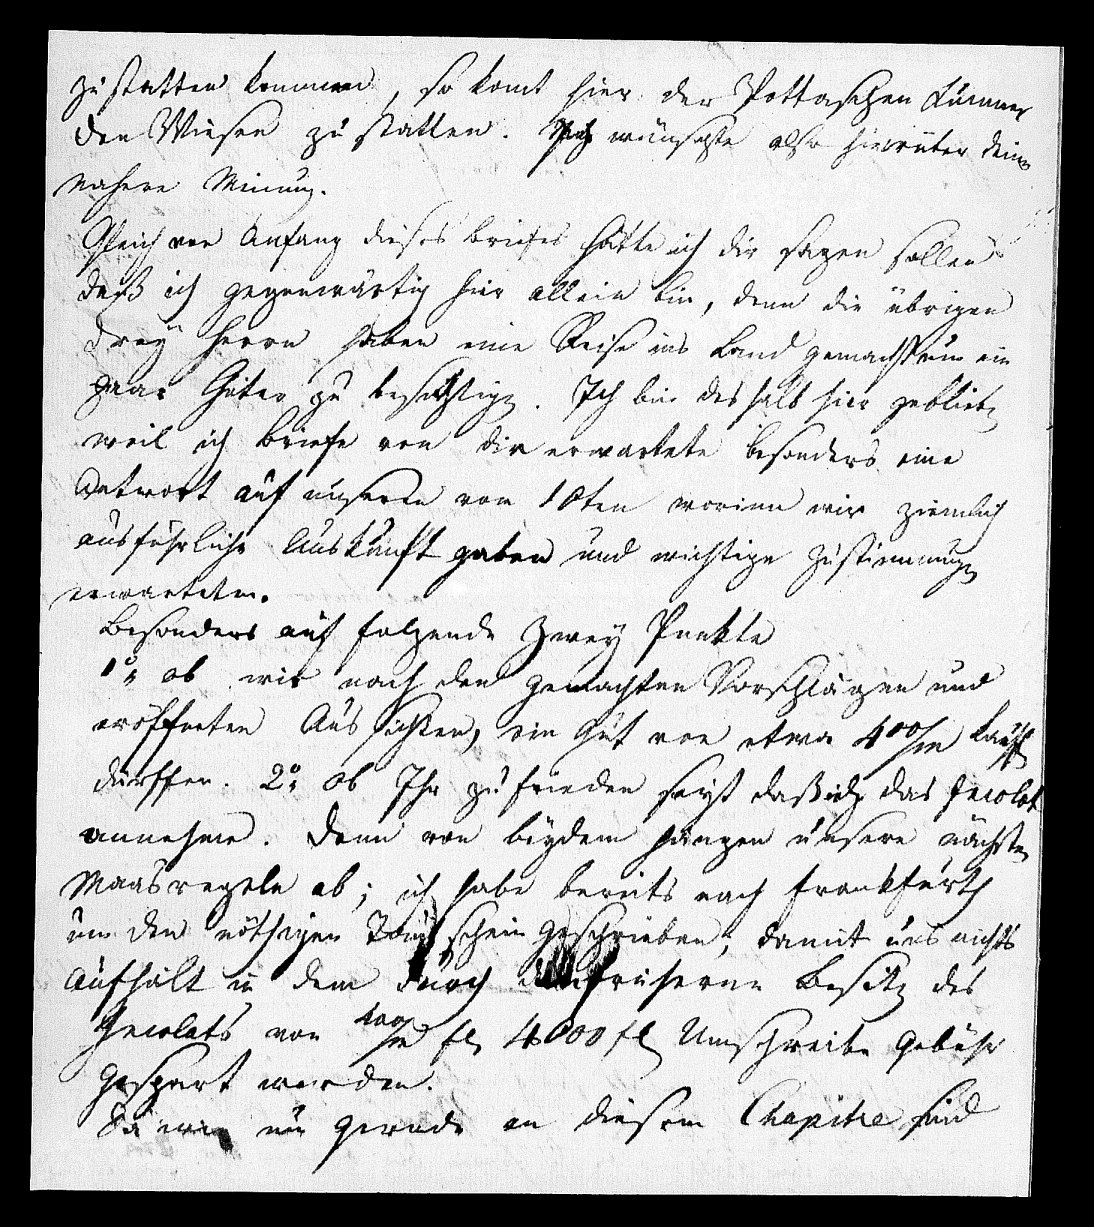 zu statten kommen, so komt hier der Pottaschen Kummer
den Wiesen zu statten. Ich wünschte also hierüber deine
nähere Minung.
Gleich von Anfang dieses briefes hätte ich dir sagen sollen
daß ich gegenwärtig hier allein bin, denn die übrigen
drey Herrn haben eine Reise ins Land gemacht um ein
paar Güter zu besichtigen. Ich bin deshalb hier geblieben
weil ich briefe von dir erwartete besonders eine
Antwort auf unseren vom 10ten worinn wir ziemlich
ausführliche Auskunft gaben und wichtige Zustimmungen
erwarteten.
besonders auf folgende zwey Punkte
1° ob wir nach den gemachten Vorschlägen und
eröffneten Aussichten, ein Gut von etwa 400/m kaufen
dürffen. 2° ob Ihr zufrieden seyt daß ich das Incolat
annehme. Denn von beydem hängen unsere nächsten
Maasregeln ab; ich habe bereits nach Frankfurth
um den nöthigen Taufschein geschrieben, damit uns nichts
aufhält u dem durch früheren Besitz des
Incolats von 400/m fl 4000 fl Umschreibe Gebühr
gespart werden.
Da wir nun gerade an diesem Chapitre sind